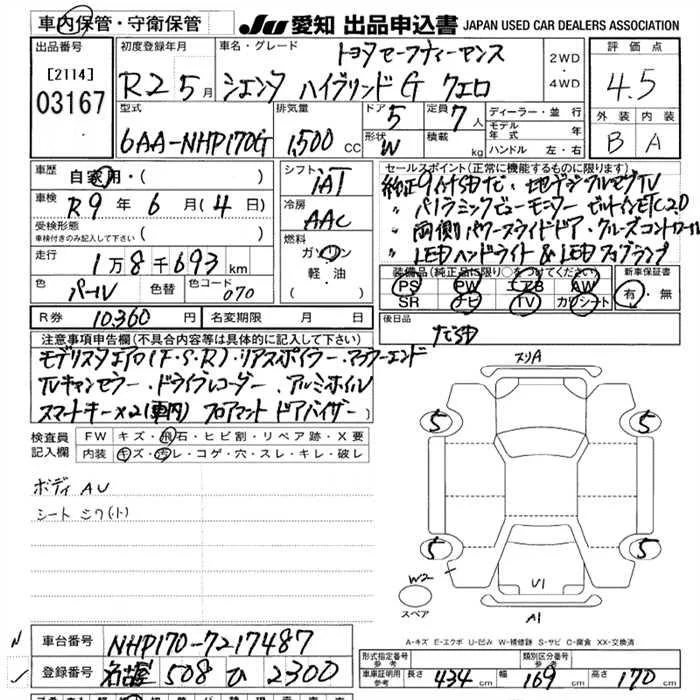 車内保管・守衛保管
JU愛知 出品申込書 JAPAN USED CAR DEALERS ASSOCIATION
出品番号
[2114]
03167
初度登録年月
R2 5月
車名・グレード
トヨタセーフティーセンス
シエンタ ハイブリッドG クエロ
2WD・4WD
評価点
4.5
外装 内装
B A
型式
6AA-NHP170G
排気量
1,500 CC
ドア 5
形状 W
定員 7人
積載 kg
ディーラー・並行
モデル年式 年
ハンドル 左・右
車歴
自家用・( )
車検
R9年 6月(4日)
受検形態
車検付きのみ記入して下さい
( )
走行
1万8千693km
色 パール 色替 色コード 070
シフト
iAT
冷房
AAC
燃料
ガソリン
軽・油
( )
セールスポイント(正常に機能するものに限ります)
純正9インチSDナビ・地デジフルセグTV
〃 パノラミックビューモニター ビルトインETC2.0
〃 両側パワースライドドア・クルーズコントロール
〃 LEDヘッドライト & LEDフォグランプ
装備品(純正品に限り○をつけてください)
PS PW エアB AW
SR ナビ TV カワシート
新車保証書
有・無
R券 10,360円 名変期限 月 日
後日品
ナビSD
注意事項申告欄(不具合内容等は具体的に記入して下さい)
モデリスタエアロ(F・S・R)・リアスポイラー・マフラーエンド
TVキャンセラー・ドライブレコーダー・アルミホイル
スマートキー×2(車内) フロアマット ドアバイザー
検査員記入欄
FW キズ・飛石・ヒビ割・リペア跡・X要
内装 キズ・汚レ・コゲ・穴・スレ・キレ・破レ
ボディ AU
シート シワ(小)
スリA
5 5
5 5
W2
スペア
U1
A1
A-キズ E-エクボ U-凹み W-補修跡 S-サビ C-腐食 XX-交換済
車台番号 NHP170-7217487
登録番号 名古屋 508 ひ 2300
形式指定番号
参考
類別区分番号
参考
車庫証明用
参考
長さ 434cm 幅 169cm 高さ 170cm